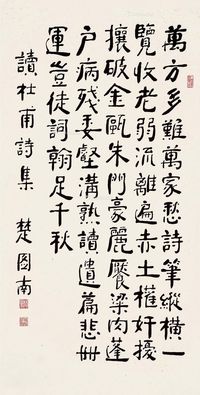 萬方多難萬家愁詩筆縱橫一
覽收老弱流離遍赤土權奸攘
攘破金甌朱門豪麗饜粱肉蓬
户病殘委壑溝熟讀遺篇悲世
運豈徒詞翰足千秋
讀杜甫詩集 楚圖南